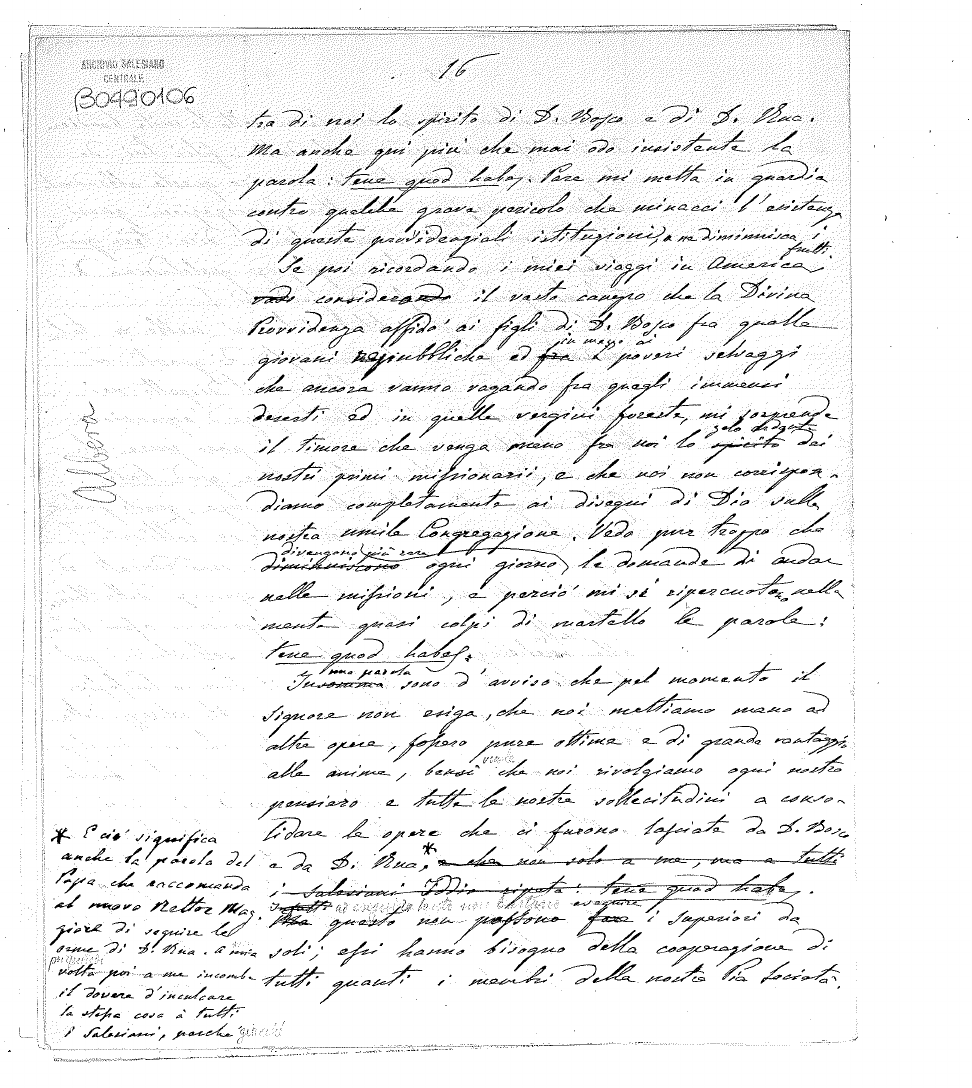 16
ARCHIVIO SALESIANO
CENTRALE
B0490106
tra di noi lo spirito di D. Bosco e di D. Rua.
Ma anche qui più che mai odo insistente la
parola: tene quod habes. Pare mi metta in guardia
contro qualche grave pericolo che minacci l'esistenza
di queste provvidenziali istituzioni, o ne diminuisca i
frutti.
Se poi ricordando i miei viaggi in America,
vado considerando il vasto campo che la Divina
Provvidenza affidò ai figli di D. Bosco fra quelle
in mezzo ai
giovani repubbliche ed fra i poveri selvaggi
che ancora vanno vagando fra quegli immensi
deserti ed in quelle vergini foreste, mi sorprende
zelo
il timore che venga meno fra noi lo spirito dei
nostri primi missionarii, e che noi non corrispon-
diamo completamente ai disegni di Dio sulla
nostra umile Congregazione. Vedo pur troppo che
divengono più rare
diminuiscono ogni giorno le domande di andar
nelle missioni, e perciò mi si ripercuotono nella
mente quasi colpi di martello le parole:
tene quod habes.
una parola
Insomma sono d'avviso che pel momento il
Signore non esiga, che noi mettiamo mano ad
altre opere, fossero pure ottime e di grande vantaggio
alle anime, bensì che noi rivolgiamo ogni nostro
pensiero e tutte le nostre sollecitudini a conso-
lidare le opere che ci furono lasciate da D. Bosco
e da D. Rua,* e che non solo a me, ma a tutti
i Salesiani Iddio ripeta: tene quod habes.
eseguire
Ma questo non possono fare i Superiori da
soli; essi hanno bisogno della cooperazione di
tutti quanti i membri della nostra Pia Società.
Albera
* E ciò significa
anche la parola del
Papa che raccomanda
al nuovo Rettor Mag-
giore di seguire le
orme di D. Rua. A mia
volta poi a me incombe
il dovere d'inculcare
la stessa cosa a tutti
i Salesiani, perchè